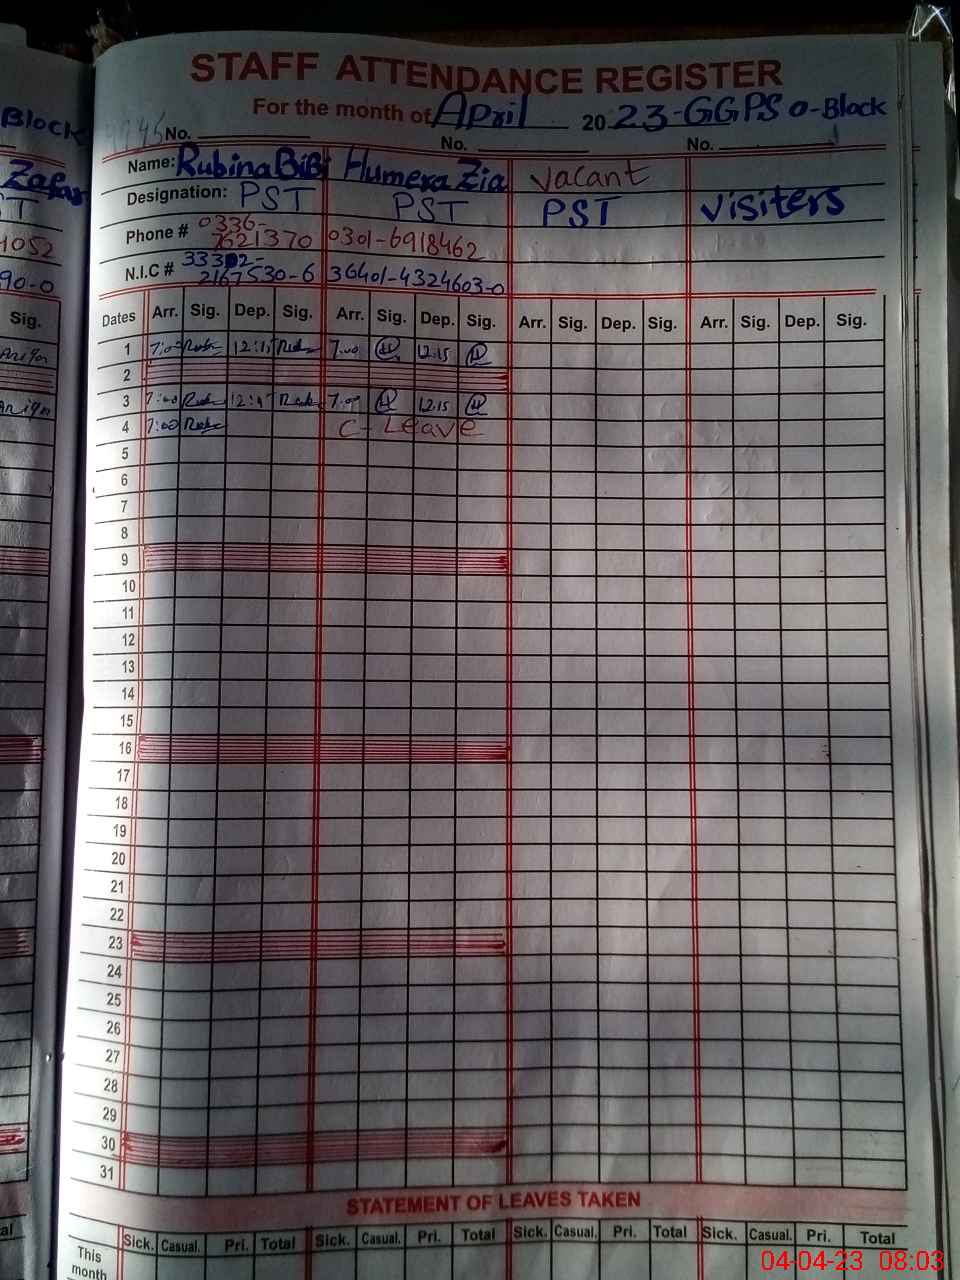 STAFF ATTENDANCE REGISTER
For the month of April 2023-GGPS O-Block
Block No. No. No.
Zafar Name: Rubina BiBi Humera Zia vacant
Designation: PST PST PST visiters
Phone # 0336-7621370 0301-6918462
1052
N.I.C # 33302-2167530-6 36401-4324603-0
90-0
Sig. Dates Arr. Sig. Dep. Sig. Arr. Sig. Dep. Sig. Arr. Sig. Dep. Sig. Arr. Sig. Dep. Sig.
1 7:00 12:15 7.00 12.15
2
3 7:00 12:15 7.00 12.15
4 7:00 C-Leave
5
6
7
8
9
10
11
12
13
14
15
16
17
18
19
20
21
22
23
24
25
26
27
28
29
30
31
STATEMENT OF LEAVES TAKEN
al This month Sick. Casual. Pri. Total Sick. Casual. Pri. Total Sick. Casual. Pri. Total Sick. Casual. Pri. Total
04-04-23 08:03